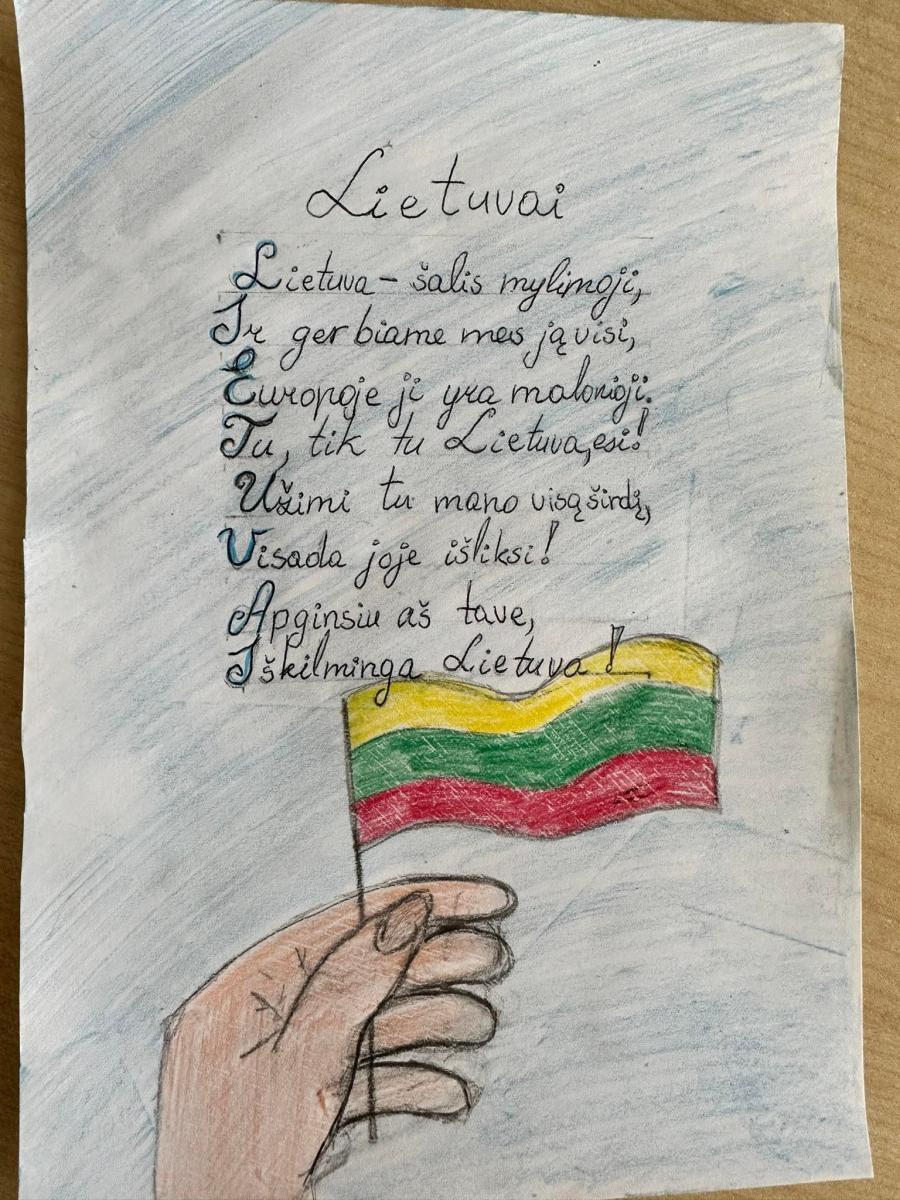 Lietuvai
Lietuva - šalis mylimoji,
Ir gerbiame mes ją visi,
Europoje ji yra malonioji.
Tu, tik tu Lietuva,esi!
Užimi tu mano visą širdį,
Visada joje išliksi!
Apginsiu aš tave,
Iškilminga Lietuva!